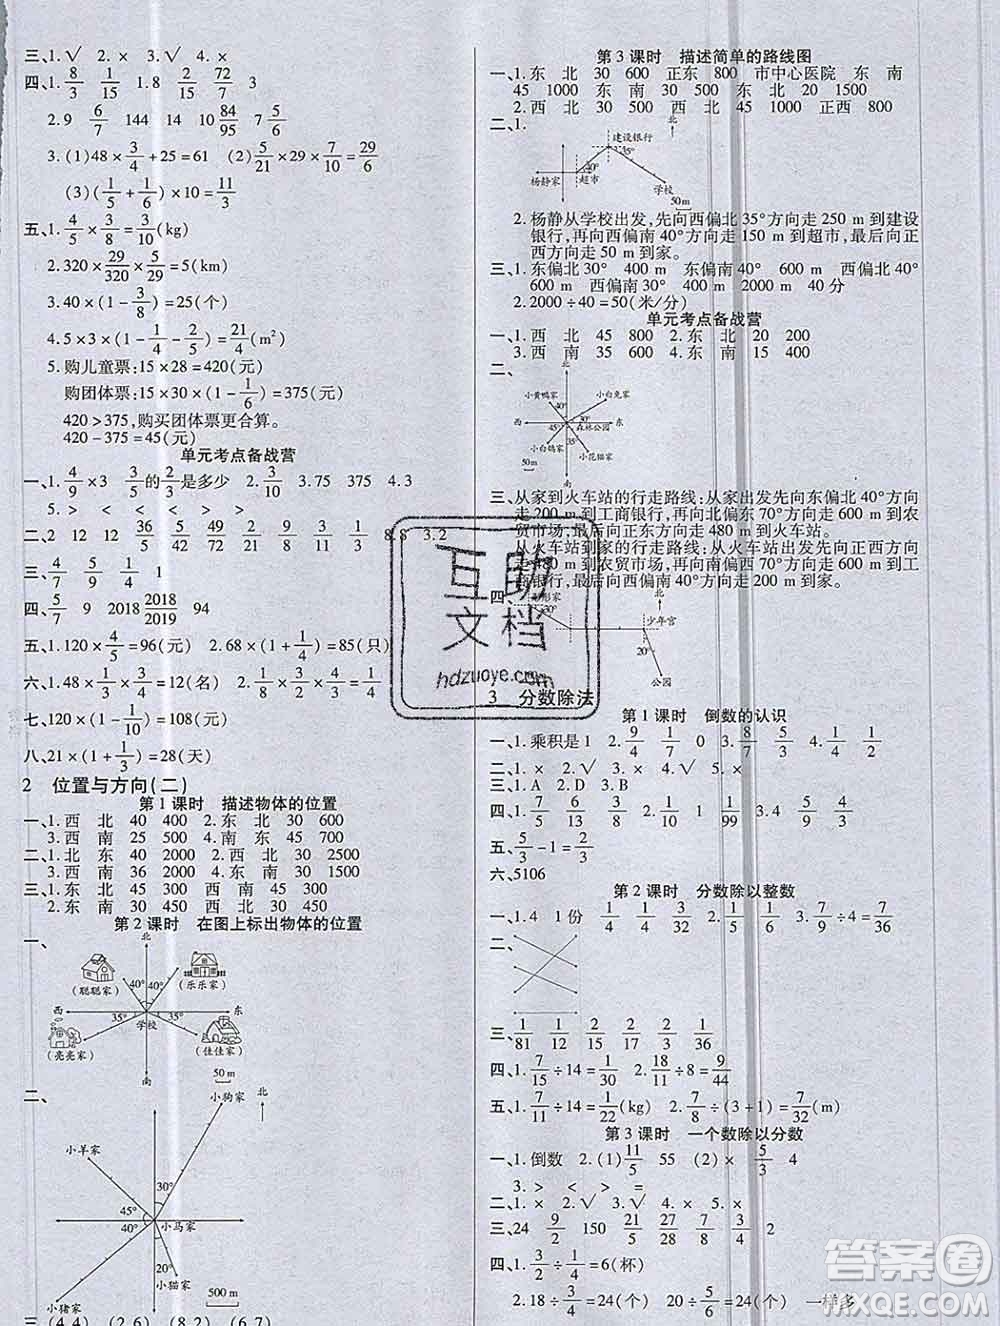 三、1. √ 2. × 3. √ 4. ×
四、1. 8/3 1/15 1. 8 2/15 72/7 3
2. 9 6/7 144 14 10 84/95 7 5/7
3. (1) 48 × 3/4 + 25 = 61 (2) 5/21 × 29 × 7/10 = 29/6
(3) (1/5 + 1/6) × 10 = 11/3
五、1. 4/5 × 3/8 = 3/10 (kg)
2. 320 × 29/320 × 5/29 = 5 (km)
3. 40 × (1 - 3/8) = 25 (个)
4. 5 × 3 × (1 - 1/4 - 2/5) = 21/4 (m²)
5. 购儿童票: 15 × 28 = 420 (元)
购团体票: 15 × 30 × (1 - 1/6) = 375 (元)
420 > 375, 购买团体票更合算。
420 - 375 = 45 (元)
单元考点备战营
一、1. 4/9 × 3 3/5 的 2/3 是多少 2. 3/10 3. 75 375 4. 3
5. > < > < >
二、2 12 12 36/5 5/42 49/50 16/77 1/6 5/8 8. 8 3. 2
三、3/4 5/7 1/4 1
四、5/7 9 2018 2018/2019 94
五、1. 120 × 4/5 = 96 (元) 2. 68 × (1 + 1/4) = 85 (只)
六、1. 48 × 1/6 × 3/2 = 12 (名) 2. 1/8 × 3/2 × 2/3 = 1/8
七、120 × (1 - 1/10) = 108 (元)
八、21 × (1 + 1/3) = 28 (天)
2 位置与方向(二)
第 1 课时 描述物体的位置
一、1. 西 北 40 400 2. 东 北 30 600
3. 西 南 25 500 4. 南 东 45 700
二、1. 北 东 40 2000 2. 西 北 30 2500
3. 西 南 36 2000 4. 东 南 30 1500
三、1. 东 北 45 300 西 南 45 300
2. 东 南 30 450 西 北 30 450
第 2 课时 在图上标出物体的位置
一、
北
(聪聪家) 40° 40° (乐乐家)
西 35° 35° 东
学校
(亮亮家) (佳佳家)
南 50 m
二、
小狗家 北
小羊家
30°
45°
40° 小马家
20°
小猫家
小猪家 500 m
三、(4,4) (6,2) (8,2) (6,7)
第 3 课时 描述简单的路线图
一、1. 东 北 30 600 正东 800 市中心医院 东 南
45 1000 东 南 30 500 东 北 20 1500
2. 西 北 30 500 西 北 45 1000 正西 800
二、1.
北
建设银行
35°
40°
杨静家 超市 学校
50 m
2. 杨静从学校出发,先向西偏北 35°方向走 250 m 到建设
银行,再向西偏南 40°方向走 150 m 到超市,最后向正
西方向走 50 m 到家。
三、1. 东偏北 30° 400 m 东偏南 40° 600 m 西偏北 40°
600 m 西偏南 30° 400 m 2000 m 40 分
2. 2000 ÷ 40 = 50 (米/分)
单元考点备战营
一、1. 西 北 45 800 2. 东 北 20 200
3. 西 南 35 600 4. 东 南 15 400
二、
北
小黄鸭家 小白兔家
40° 30°
西 45° 森林公园 东
35°
小白鸽家 小花猫家
50 m 南
三、从家到火车站的行走路线:从家出发先向东偏北 40°方向
走 200 m 到工商银行,再向北偏东 70°方向走 600 m 到农
贸市场,最后向正东方向走 480 m 到火车站。
从火车站到家的行走路线:从火车站出发先向正西方向
走 480 m 到农贸市场,再向南偏西 70°方向走 600 m 到工
商银行,最后向西偏南 40°方向走 200 m 到家。
四、
彤彤家 北
30° 少年宫
20°
公园
3 分数除法
第 1 课时 倒数的认识
一、1. 乘积是 1 2. 9/4 1/7 0 3. 8/7 5/3 4. 1/4 1/2
二、1. × 2. √ 3. √ 4. × 5. ×
三、1. A 2. D 3. B
四、1. 7/5 6/13 5/8 2. 1/7 1/99 3. 1/4 9/13
五、5/3 - 1 = 2/3
六、5106
第 2 课时 分数除以整数
一、1. 4 1 份 1/4 1/4 2. 1/3 3/7 3. 7/9 ÷ 4 = 7/36 7/36
二、
三、1/81 1/12 1/15 2/15 1/2 1/36
四、1. 7/15 ÷ 14 = 1/30 2. 18/11 ÷ 8 = 9/44
五、1. 7/11 ÷ 14 = 1/22 (kg) 2. 7/8 ÷ (3 + 1) = 7/32 (m)
第 3 课时 一个数除以分数
一、1. 倒数 2. (1) 11/5 55 (2) × 5/3 4
3. > < > =
二、1. × 2. √ 3. √ 4. ×
三、24 9/2 150 21/5 27/5 3/2 2
四、1. 3/2 ÷ 1/4 = 6 (杯)
2. 18 ÷ 3/4 = 24 (个) 20 ÷ 5/6 = 24 (个) 一样多
互助
文档
hdzuoye.com
答案圈
MXQE.COM